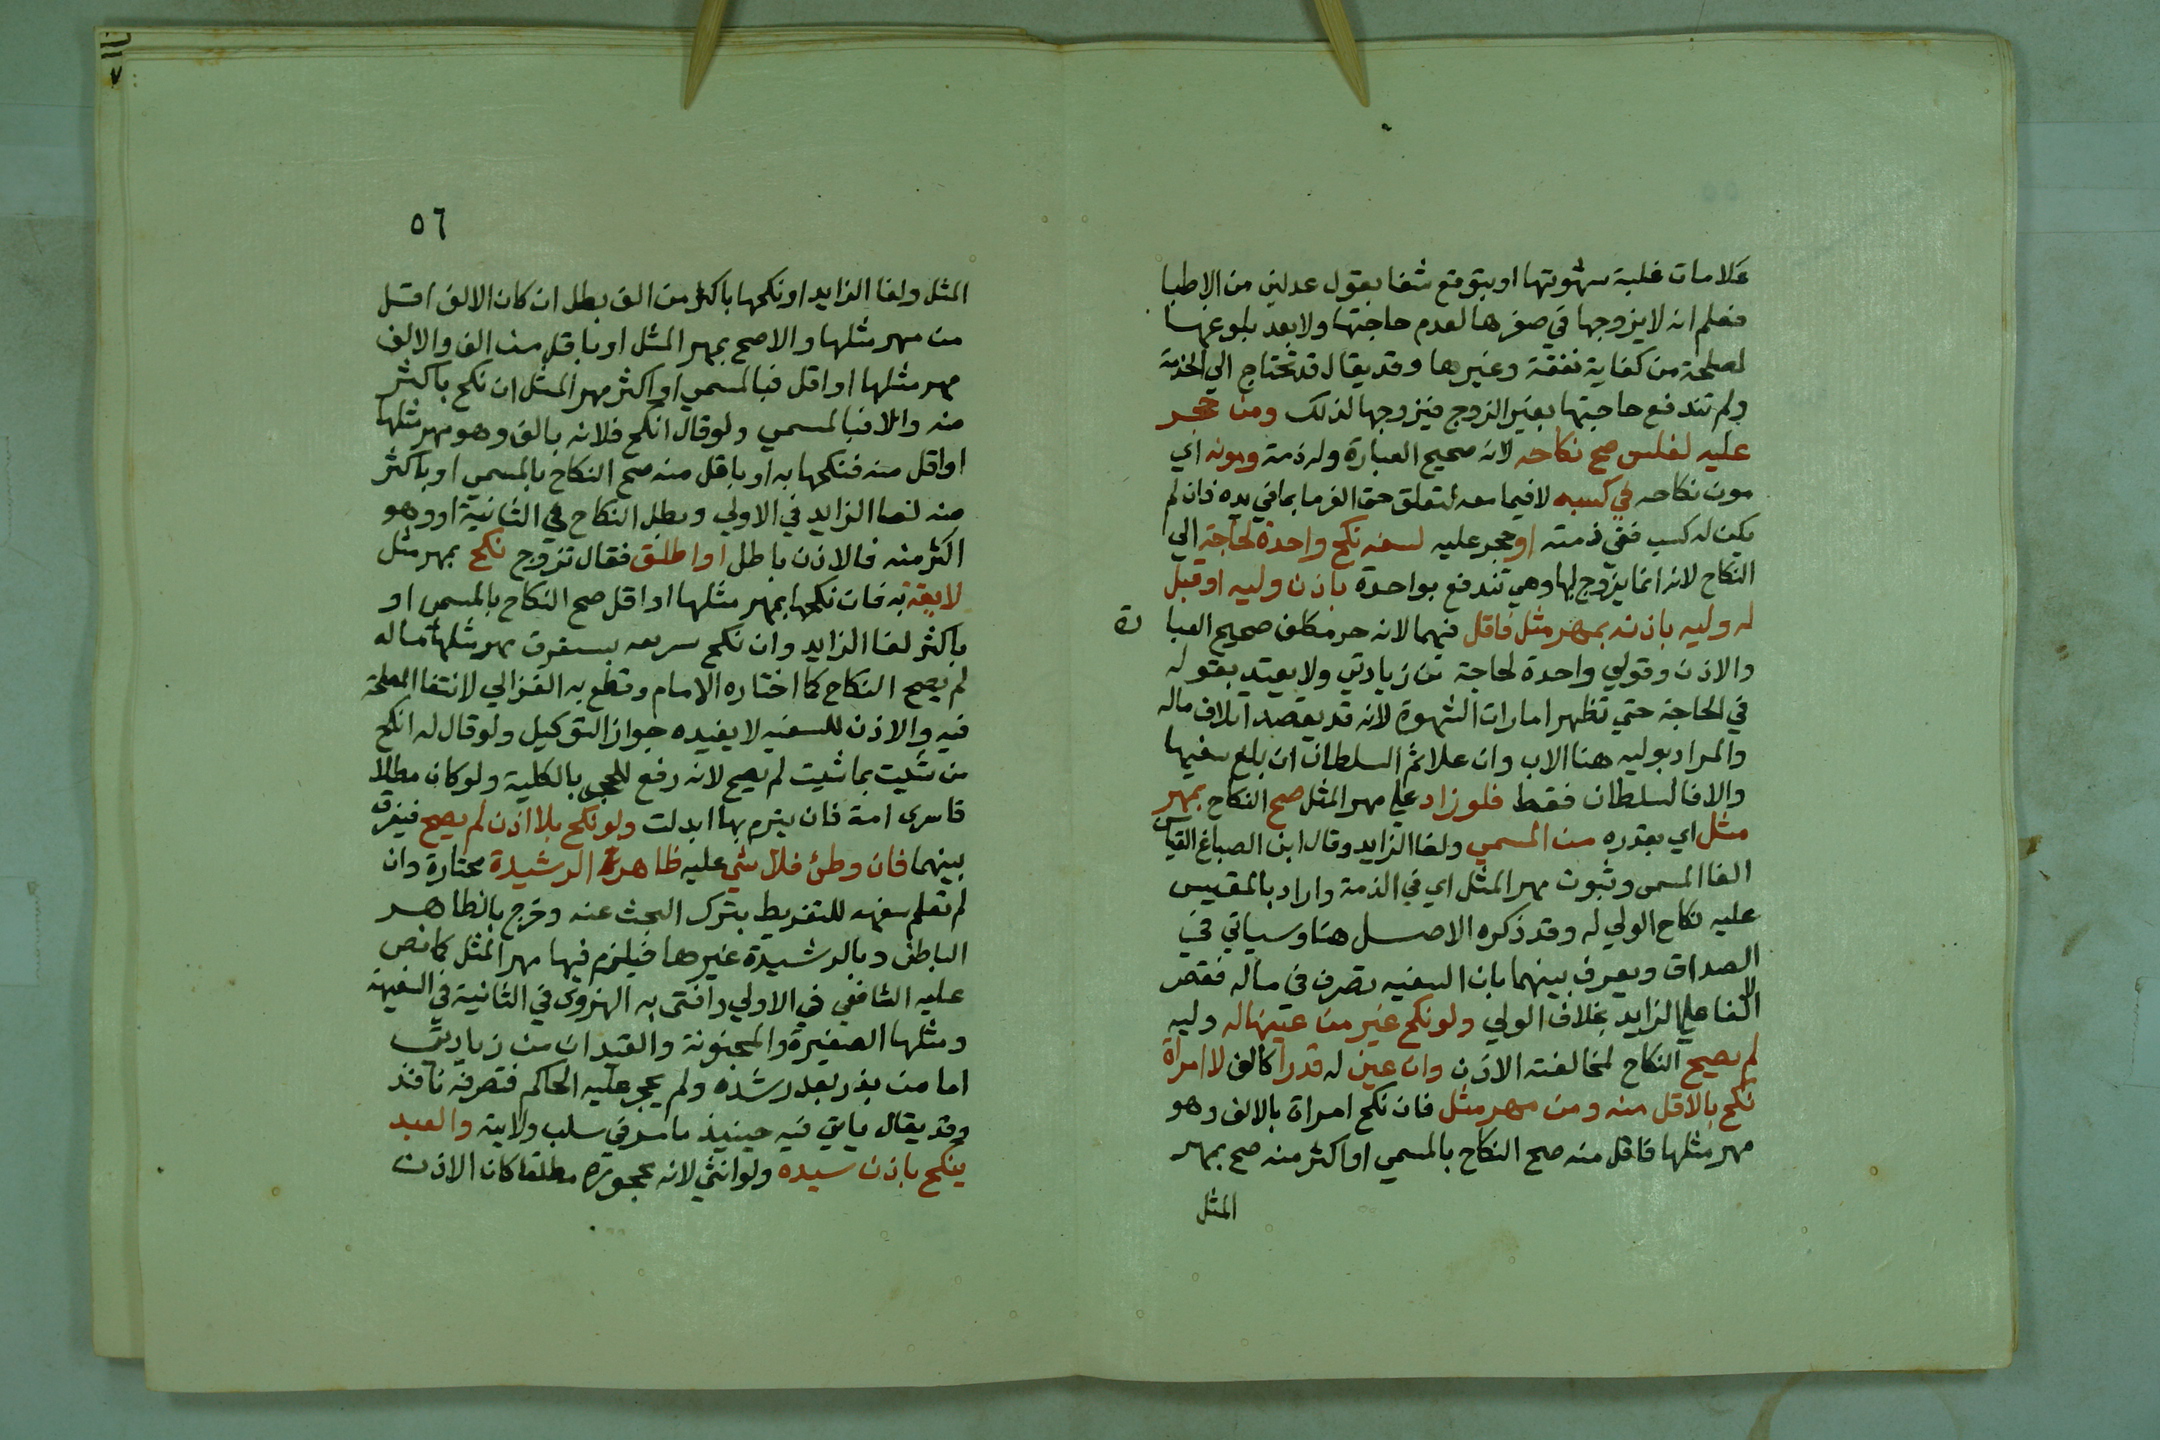 علامات غلبة شهوتها او يتوقع شفا بقول عدلين من الاطبا
فعلم انه لا يزوجها في صغرها لعدم حاجتها ولا بعد بلوغها
لمصلحة من كفاية نفقة وغيرها وقد يقال قد تحتاج الي الخدمة
ولم تندفع حاجتها بغير الزوج فيزوجها لذلك ومن حجر
عليه لفلس صح نكاحه لانه صحيح العبارة وله ذمة ومونه اي
مون نكاحه في كسبه لا فيما معه لتعلق حق الغرما بما في يده فان لم
يكن له كسب ففي ذمته او حجر عليه لسفه نكح واحدة لحاجة الي
النكاح لانه انما يزوج لها وهي تندفع بواحدة باذن وليه او قبل
له وليه باذنه بمهر مثل فاقل فيهما لانه حر مكلف صحيح العبا رة
والاذن وقولي واحدة لحاجة من زيادتي ولا يعتد بقوله
في الحاجة حتي تظهر امارات الشهوة لانه قد يقصد اتلاف ماله
والمراد بوليه هنا الاب وان علا ثم السلطان ان بلغ سفيها
والا فالسلطان فقط فلو زاد علي مهر المثل صح النكاح بمهر
مثل اي بقدره من المسمي ولغا الزايد وقال ابن الصباغ القياس
الغا المسمي وثبوت مهر المثل اي في الذمة واراد بالمقيس
عليه نكاح الولي له وقد ذكره الاصل هنا وسياتي في
الصداق ويفرق بينهما بان السفيه تصرف في ماله فقصر
الالغا علي الزايد بخلاف الولي ولو نكح غير من عينها له وليه
لم يصح النكاح لمخالفته الاذن وان عين له قدرا كالف لا امراة
نكح بالاقل منه ومن مهر مثل فان نكح امراة بالالف وهو
مهر مثلها فاقل منه صح النكاح بالمسمي او اكثر منه صح بمهر
المثل
٥٦
المثل ولغا الزايد او نكحها باكثر من الف بطل ان كان الالف اقل
من مهر مثلها والاصح بمهر المثل او باقل من الف والالف
مهر مثلها او اقل فبالمسمي او اكثر مهر المثل ان نكح باكثر
منه والا فبالمسمي ولو قال انكح فلانه بالف وهو مهر مثلها
او اقل منه فنكحها به او باقل منه صح النكاح بالمسمي او باكثر
منه لغا الزايد في الاولي وبطل النكاح في الثانية او وهو
اكثر منه فالاذن باطل او اطلق فقال تزوج نكح بمهر مثل
لايقة به فان نكحها بمهر مثلها او اقل صح النكاح بالمسمي او
باكثر لغا الزايد وان نكح سريعه يستغرق مهر مثلها ماله
لم يصح النكاح كما اختاره الامام وقطع به الغزالي لانتفا المصلحة
فيه والاذن للسفيه لا يفيده جواز التوكيل ولو قال له انكح
من شيت بما شيت لم يصح لانه رفع للحجر بالكلية ولو كان مطلاقا
سرى امة فان يترم بها ابدلت ولو نكح بلا اذن لم يصح فيفرق
بينهما فان وطئ فلا شي عليه ظاهرا لرشيدة مختارة وان
لم تعلم سفهه للتفريط بترك البحث عنه وخرج بالظاهر
الباطن وبالرشيدة غيرها فيلزم فيها مهر المثل كما نص
عليه الشافعي في الاولي وافتى به النووي في الثانية في السفيهة
ومثلها الصغيرة والمجنونة والقيدان من زيادتي
اما من بذر بعد رشده ولم يحجر عليه الحاكم فتصرفه نافذ
وقد يقال ياتي فيه حينيذ ما مر في سلب ولايته والعبد
ينكح باذن سيده ولو انثي لانه محجوره مطلقا كان الاذن